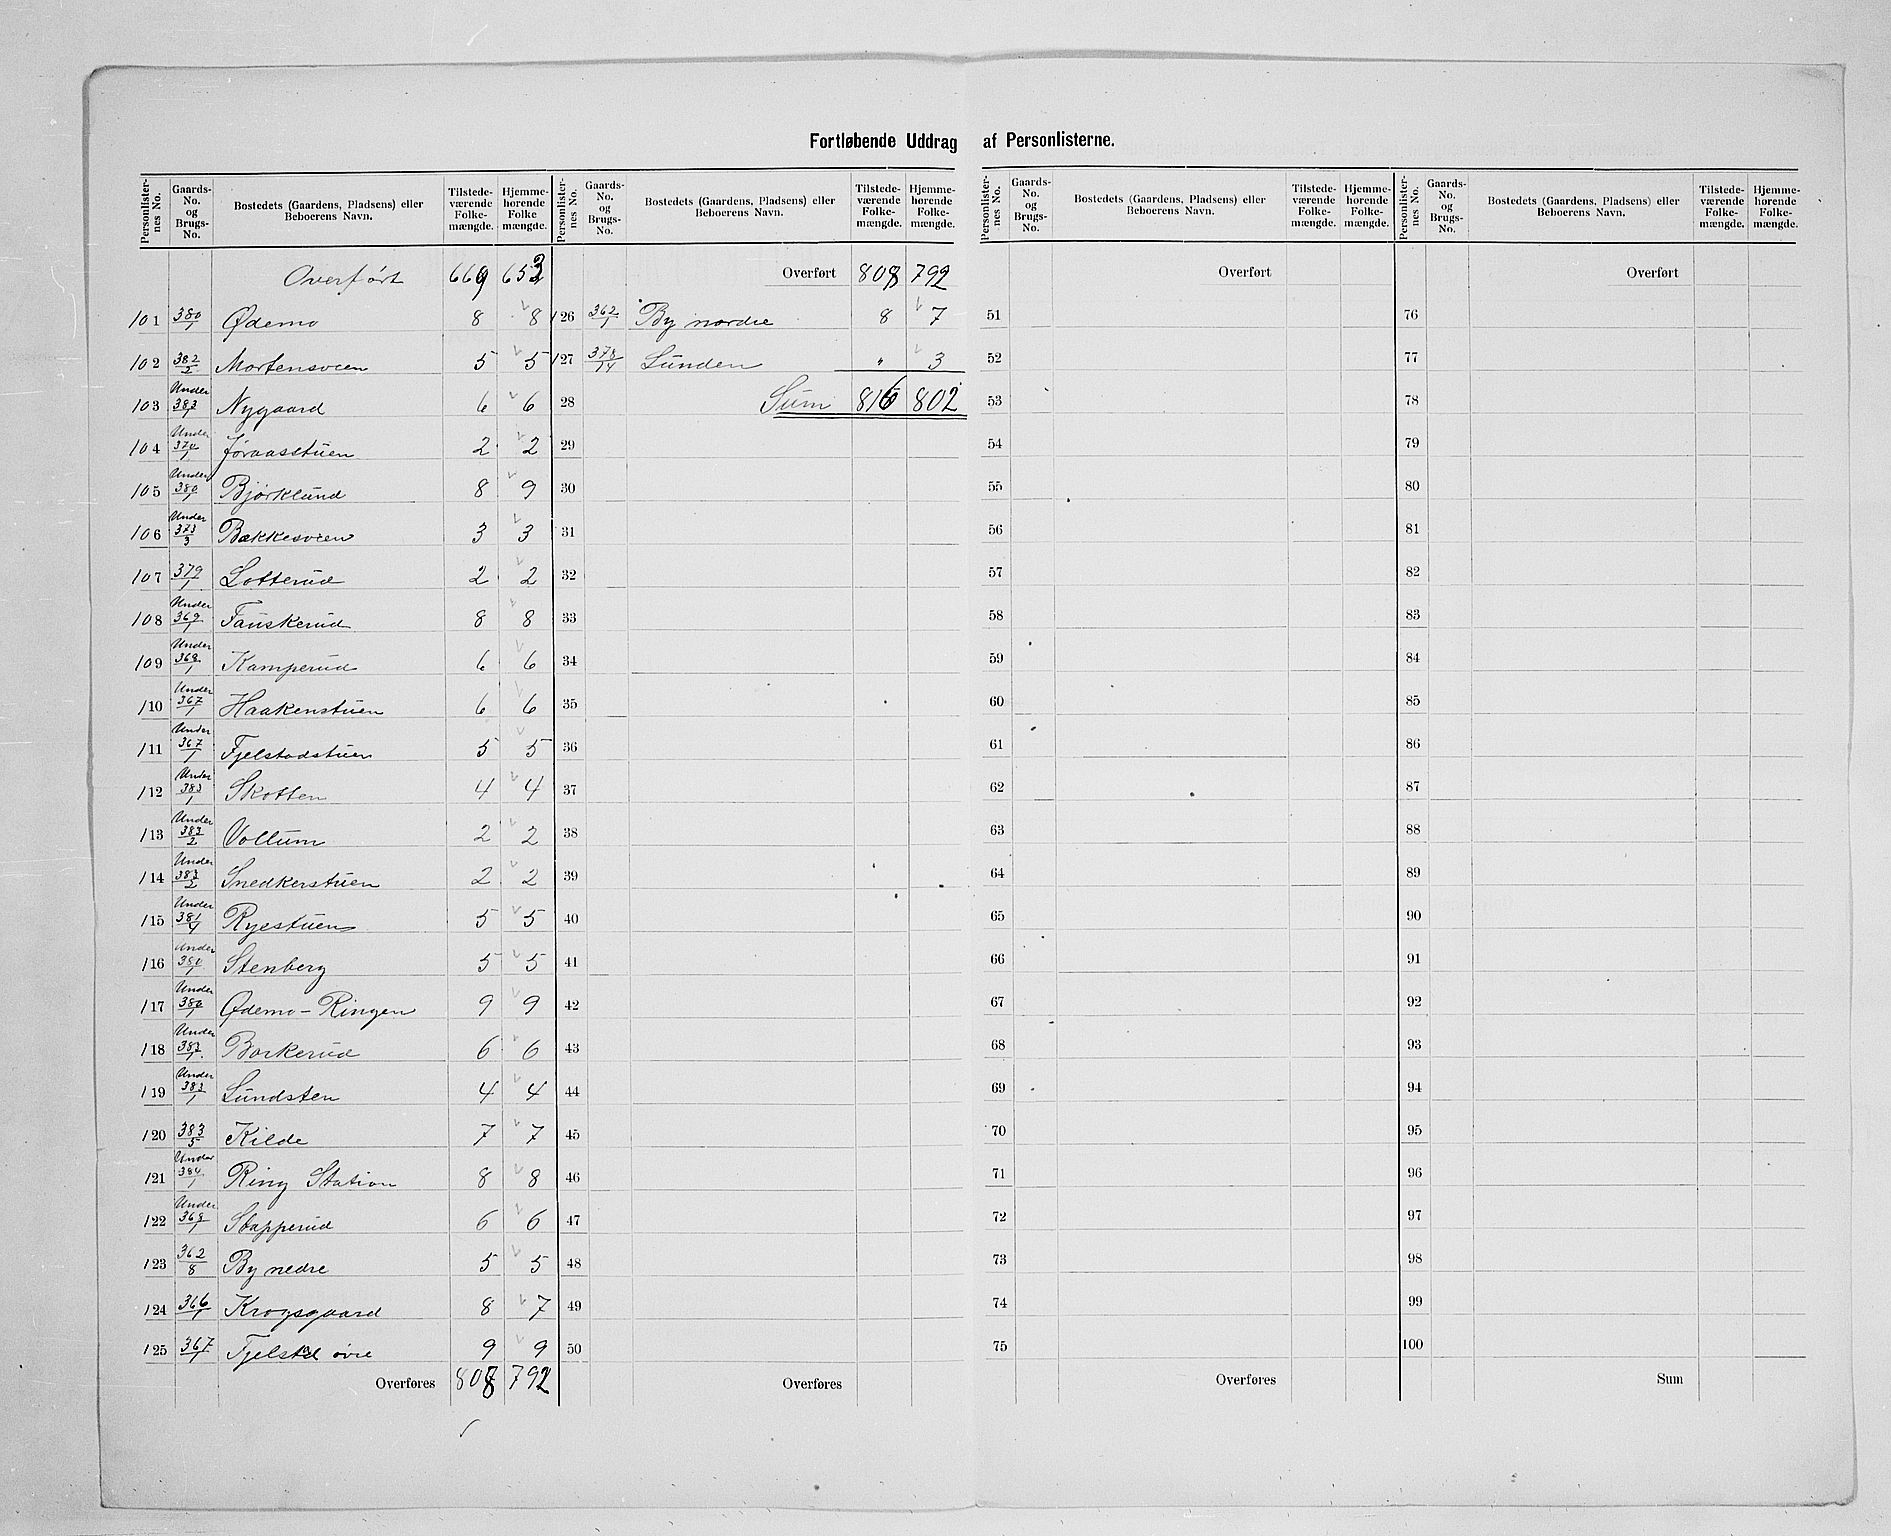 Fortløbende Uddrag af Personlisterne.
Personlister-nes No. | Gaards-No. og Brugs-No. | Bostedets (Gaardens, Pladsens) eller Beboerens Navn. | Tilstede-værende Folke-mængde. | Hjemme-hørende Folke mængde.
Overført 669 653
101 380/1 Ødemo 8 8
102 382/2 Mortensveen 5 5
103 Under 383/1 Nygaard 6 6
104 Under 370/1 Jøraasstuen 2 2
105 Under 380/1 Bjørklund 8 9
106 Under 373/3 Bakkesveen 3 3
107 379/1 Lotterud 2 2
108 Under 369/1 Fauskerud 8 8
109 Under 368/1 Kamperud 6 6
110 Under 367/1 Haakenstuen 6 6
111 Under 367/1 Fjelstadstuen 5 5
112 Under 383/1 Skotten 4 4
113 Under 383/2 Vollum 2 2
114 Under 383/2 Snedkerstuen 2 2
115 Under 381/4 Ryestuen 5 5
116 Under 380/1 Stenberg 5 5
117 Under 380/1 Ødemo-Ringen 9 9
118 Under 387/1 Borkerud 6 6
119 Under 383/1 Lundsten 4 4
120 383/5 Kilde 7 7
121 Under 384/1 Ring Station 8 8
122 Under 368/1 Stapperud 6 6
123 362/8 By nedre 5 5
124 366/1 Krogsgaard 8 7
125 367/1 Fjelstad øvre 9 9
Overføres 808 792
Personlister-nes No. | Gaards-No. og Brugs-No. | Bostedets (Gaardens, Pladsens) eller Beboerens Navn. | Tilstede-værende Folke-mængde. | Hjemme-hørende Folke-mængde.
Overført 808 792
126 362/1 By nordre 8 7
127 378/14 Lunden " 3
28 Sum 816 802
29
30
31
32
33
34
35
36
37
38
39
40
41
42
43
44
45
46
47
48
49
50
Overføres
Personlister-nes No. | Gaards-No. og Brugs-No. | Bostedets (Gaardens, Pladsens) eller Beboerens Navn. | Tilstede-værende Folke-mængde. | Hjemme-hørende Folke-mængde.
Overført
51
52
53
54
55
56
57
58
59
60
61
62
63
64
65
66
67
68
69
70
71
72
73
74
75
Overføres
Personlister-nes No. | Gaards-No. og Brugs-No. | Bostedets (Gaardens, Pladsens) eller Beboerens Navn. | Tilstede-værende Folke-mængde. | Hjemme-hørende Folke-mængde.
Overført
76
77
78
79
80
81
82
83
84
85
86
87
88
89
90
91
92
93
94
95
96
97
98
99
100
Sum